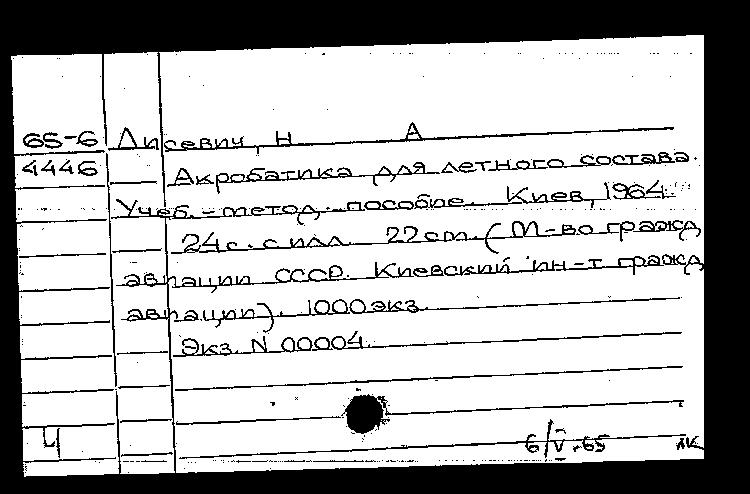 65-6 Лисевич, Н А
4446 Акробатика для летного состава.
Учеб.-метод. пособие. Киев, 1964.
24с. с илл. 22 см. (М-во гражд
авиации СССР. Киевский ин-т гражд
авиации). 1000 экз.
Экз. N 00004.
Ч 6/V.65 ЛК